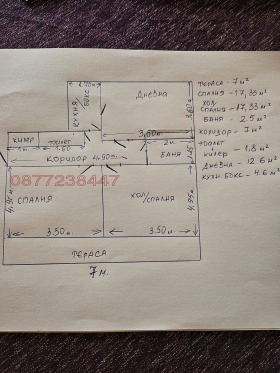 1.70м.
КУХНЯ/БОКС
ДНЕВНА
3.60м.
КИЛЕР
ТОАЛЕТ
1м.
1.60
2м.
КОРИДОР 4.90м.
БАНЯ
1.25
0877238447
4.95м.
СПАЛНЯ
ХОЛ/СПАЛНЯ
4.95м.
3.50м.
3.50м.
ТЕРАСА
7м.
ТЕРАСА - 7м²
СПАЛНЯ - 17,33м²
ХОЛ/
СПАЛНЯ - 17,33м²
БАНЯ - 2.5м²
КОРИДОР - 7м²
ТОАЛЕТ
КИЛЕР - 1,8м²
ДНЕВНА - 12.6м²
КУХН. БОКС - 4.6м²